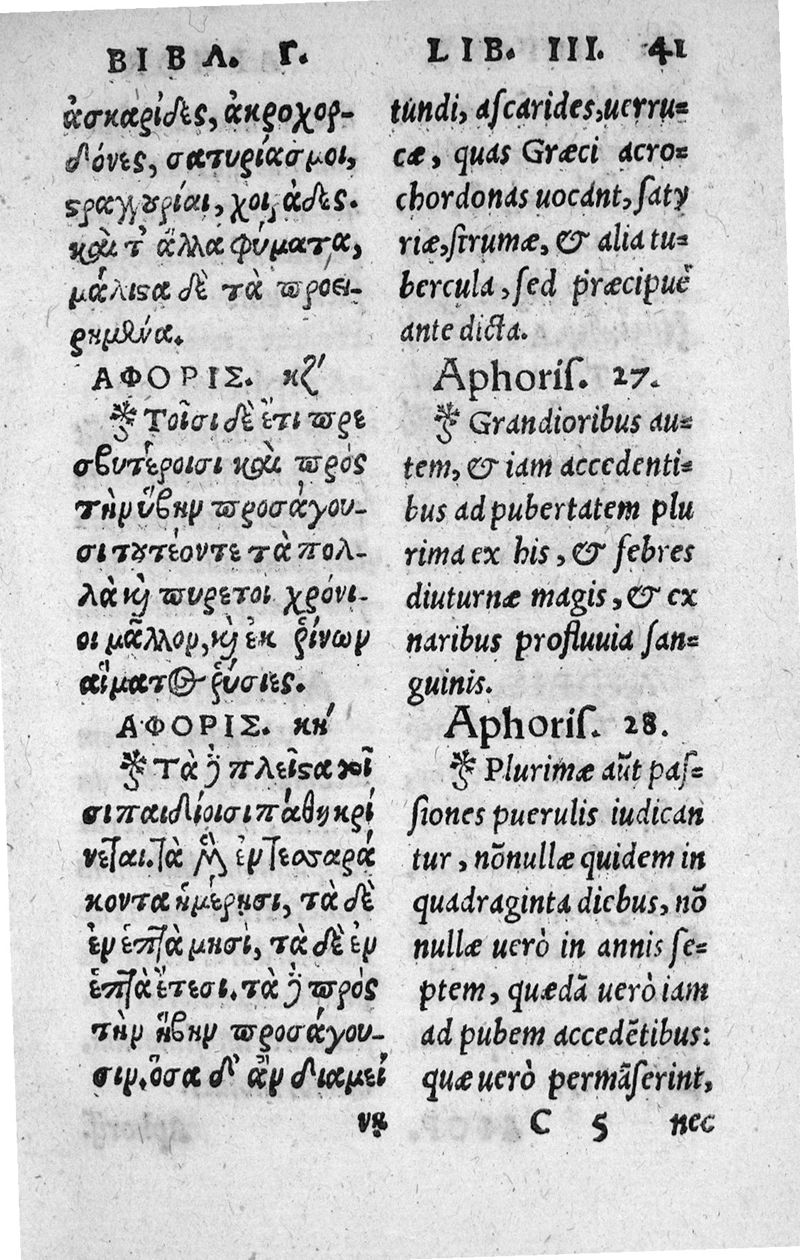 ΒΙΒΛ. Γ.
ἀσκαρίδες, ἀκροχορ-
δόνες, σατυρίασμοι,
ϛραγγȣρίαι, χοιράδες.
καὶ τ' ἄλλα φύματα,
μάλιϛα δὲ τὰ προει-
ρημένα.
ΑΦΟΡΙΣ. κζʹ
Τοῖσι δὲ ἔτι πρε
σβυτέροισι καὶ πρὸς
τὴν ὕβην προσάγου-
σι τȣτέοντε τὰ πολ-
λὰ κỳ πυρετοι χρόνι-
οι μᾶλλον, κỳ ἐκ ῥίνων
αἵματος ῥύσιες.
ΑΦΟΡΙΣ. κηʹ
Τὰ ὃ πλεῖϛα
σι παιδίοισι πάθη κρί
νεται. τὰ μὲν ἐν τεσσαρά
κοντα ἡμέρησι, τὰ δὲ
ἐν ἑπτὰ μησὶ, τὰ δὲ ἐν
ἑπτὰ ἔτεσι. τὰ ὃ πρὸς
τὴν ἥβην προσάγου-
σιν. ὅσα δ' ἂν διαμεί
νη
LIB. III. 41
tundi, aſcarides,uerru=
cæ, quas Græci acro=
chordonas uocant, ſaty
riæ,ſtrumæ, & alia tu=
bercula, ſed præcipuè
ante dicta.
Aphoriſ. 27.
Grandioribus au=
tem, & iam accedenti=
bus ad pubertatem plu
rima ex his, & febres
diuturnæ magis, & ex
naribus profluuia ſan=
guinis.
Aphoriſ. 28.
Plurimæ aũt paſ=
ſiones puerulis iudican
tur, nõnullæ quidem in
quadraginta diebus, nõ
nullæ uerò in annis ſe=
ptem, quædã uerò iam
ad pubem accedẽtibus:
quæ uerò permãſerint,
C 5 nec